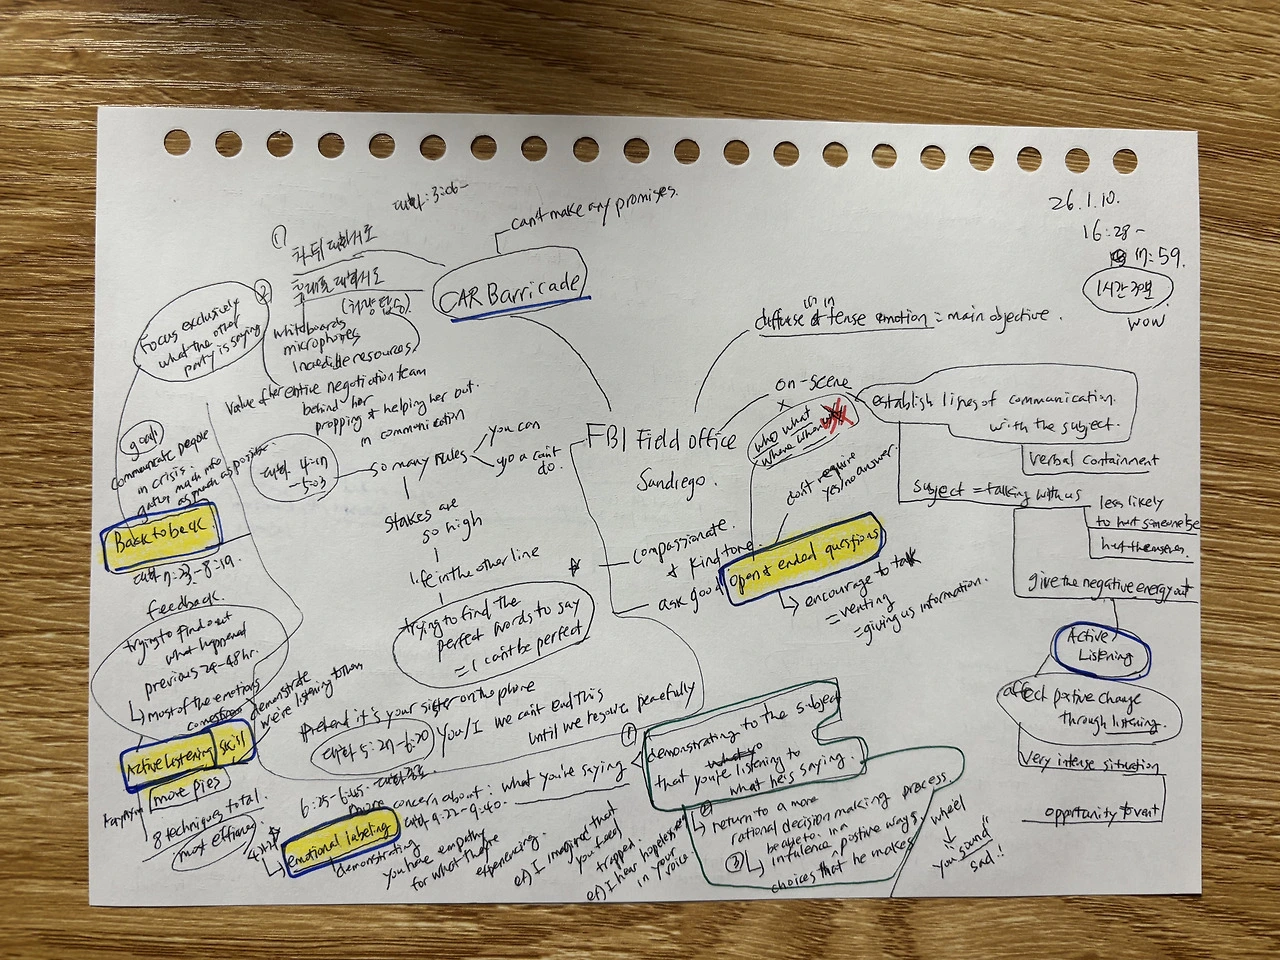 대화:3:06-
can't make any promises.
26.1.10.
16:28-
17:59.
1시간 30분
WOW
①
CAR Barricade
②
Focus exclusively
what the other
party is saying
whiteboards
microphones
Incredible resources.
Value of her entire negotiation team
behind her
propping & helping her out.
in communication
diffuse & in tense emotion = main objective.
on-scene
x
who what
where when
establish lines of communication.
with the subject.
verbal containment
FBI Field office
Sandiego.
goal)
communicate people
in crisis.
gather much info
as much as possible
대화 4:17
-5:03
so many rules
you can
you can't
do.
stakes are
so high
life in the other line
trying to find the
perfect words to say
= I can't be perfect
don't require
yes/no answer.
subject = talking with us
less likely
to hurt someone else
hurt themselves.
give the negative energy out
Back to back
대화 7:23-8:19.
feedback.
compassionate
& kind tone.
ask good
open & ended questions
encourage to talk
= venting
= giving us information.
Active
Listening
affect positive change
through listening.
very intense situation
opportunity to vent
trying to find out
what happened
previous 24-48hr.
most of the emotions
comes from
demonstrate
we're listening to them
Active Listening skill
more pies
8 techniques total.
most efficient
Pretend it's your sister on the phone
대화 5:27-6:20
You/I we can't end this
until we resolve peacefully
6:25-6:45.
more concern about : what you're saying
대화 9:22-9:40.
emotional labeling
demonstrating
you have empathy
for what they're
experiencing.
ex) I imagined that
you feel
trapped.
ex) I hear hopelessness
in your
voice
①
demonstrating to the subject
that you're listening to
what he's saying.
②
return to a more
rational decision making process
③
be able to
infulence in a positive ways
choices that he makes
wheel
"you sound"
sad.!